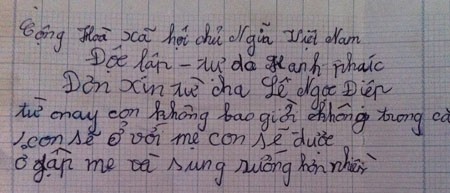 Cộng Hoà xã hội chủ Ngĩa Việt Nam
Độc lâp - tự do Hanh phaíc
Đơn xin từ cha Lê Ngoc Điệp
từ nay con không bao giờ không trong cả
con sẽ ở với mẹ con sẽ được
ở gần mẹ và sung sướng hơn nhiề